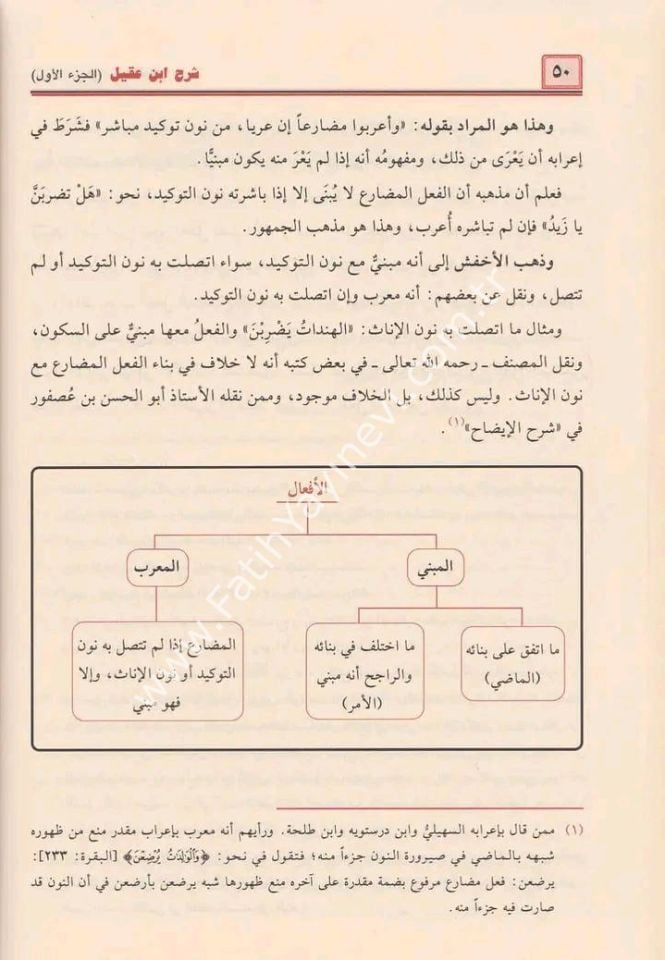 ٥٠
شرح ابن عقيل (الجزء الأول)
وهذا هو المراد بقوله: «وأعربوا مضارعاً إن عريا، من نون توكيد مباشر» فشَرَطَ في
إعرابه أن يَعْرَى من ذلك، ومفهومُه أنه إذا لم يَعْرَ منه يكون مبنيًّا.
فعلم أن مذهبه أن الفعل المضارع لا يُبنَى إلا إذا باشرته نون التوكيد، نحو: «هَلْ تضربَنَّ
يا زَيدُ» فإن لم تباشره أُعرب، وهذا هو مذهب الجمهور.
وذهب الأخفش إلى أنه مبنيٌّ مع نون التوكيد، سواء اتصلت به نون التوكيد أو لم
تتصل، ونقل عن بعضهم: أنه معرب وإن اتصلت به نون التوكيد.
ومثال ما اتصلت به نون الإناث: «الهنداتُ يَضْرِبْنَ» والفعلُ معها مبنيٌّ على السكون،
ونقل المصنف ـ رحمه الله تعالى ـ في بعض كتبه أنه لا خلاف في بناء الفعل المضارع مع
نون الإناث. وليس كذلك، بل الخلاف موجود، وممن نقله الأستاذ أبو الحسن بن عُصفور
في «شرح الإيضاح»(١).
الأفعال
المبني
المعرب
ما اتفق على بنائه
(الماضي)
ما اختلف في بنائه
والراجح أنه مبني
(الأمر)
المضارع إذا لم تتصل به نون
التوكيد أو نون الإناث، وإلا
فهو مبني
(١) ممن قال بإعرابه السهيليُّ وابن درستويه وابن طلحة. ورأيهم أنه معرب بإعراب مقدر منع من ظهوره
شبهه بالماضي في صيرورة النون جزءاً منه؛ فتقول في نحو: ﴿وَالْوَالِدَاتُ يُرْضِعْنَ﴾ [البقرة: ٢٣٣]:
يرضعن: فعل مضارع مرفوع بضمة مقدرة على آخره منع ظهورها شبه يرضعن بأرضعن في أن النون قد
صارت فيه جزءاً منه.
www.FatihYayinevi.com.tr